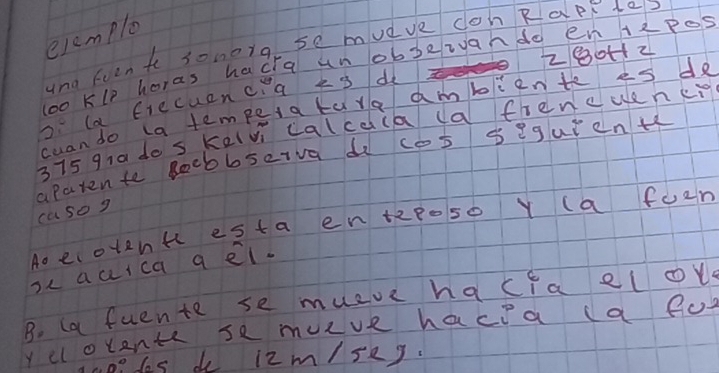 ejemplo
una fuente sonora se mueve con Rapi
100 Klp horas hacia un observando en repos
si la frecuencia es de 280Hz
cuando la temperatura ambiente es de
375 grados Kelvi calcula la
aparente observa de los siguiente
casos
A. el oyente esta en reposo y la fuen
se acerca a él.
B. la fuente se mueve hacia el oye
y el oyente se mueve hacia la fue
de 12 m/seg.